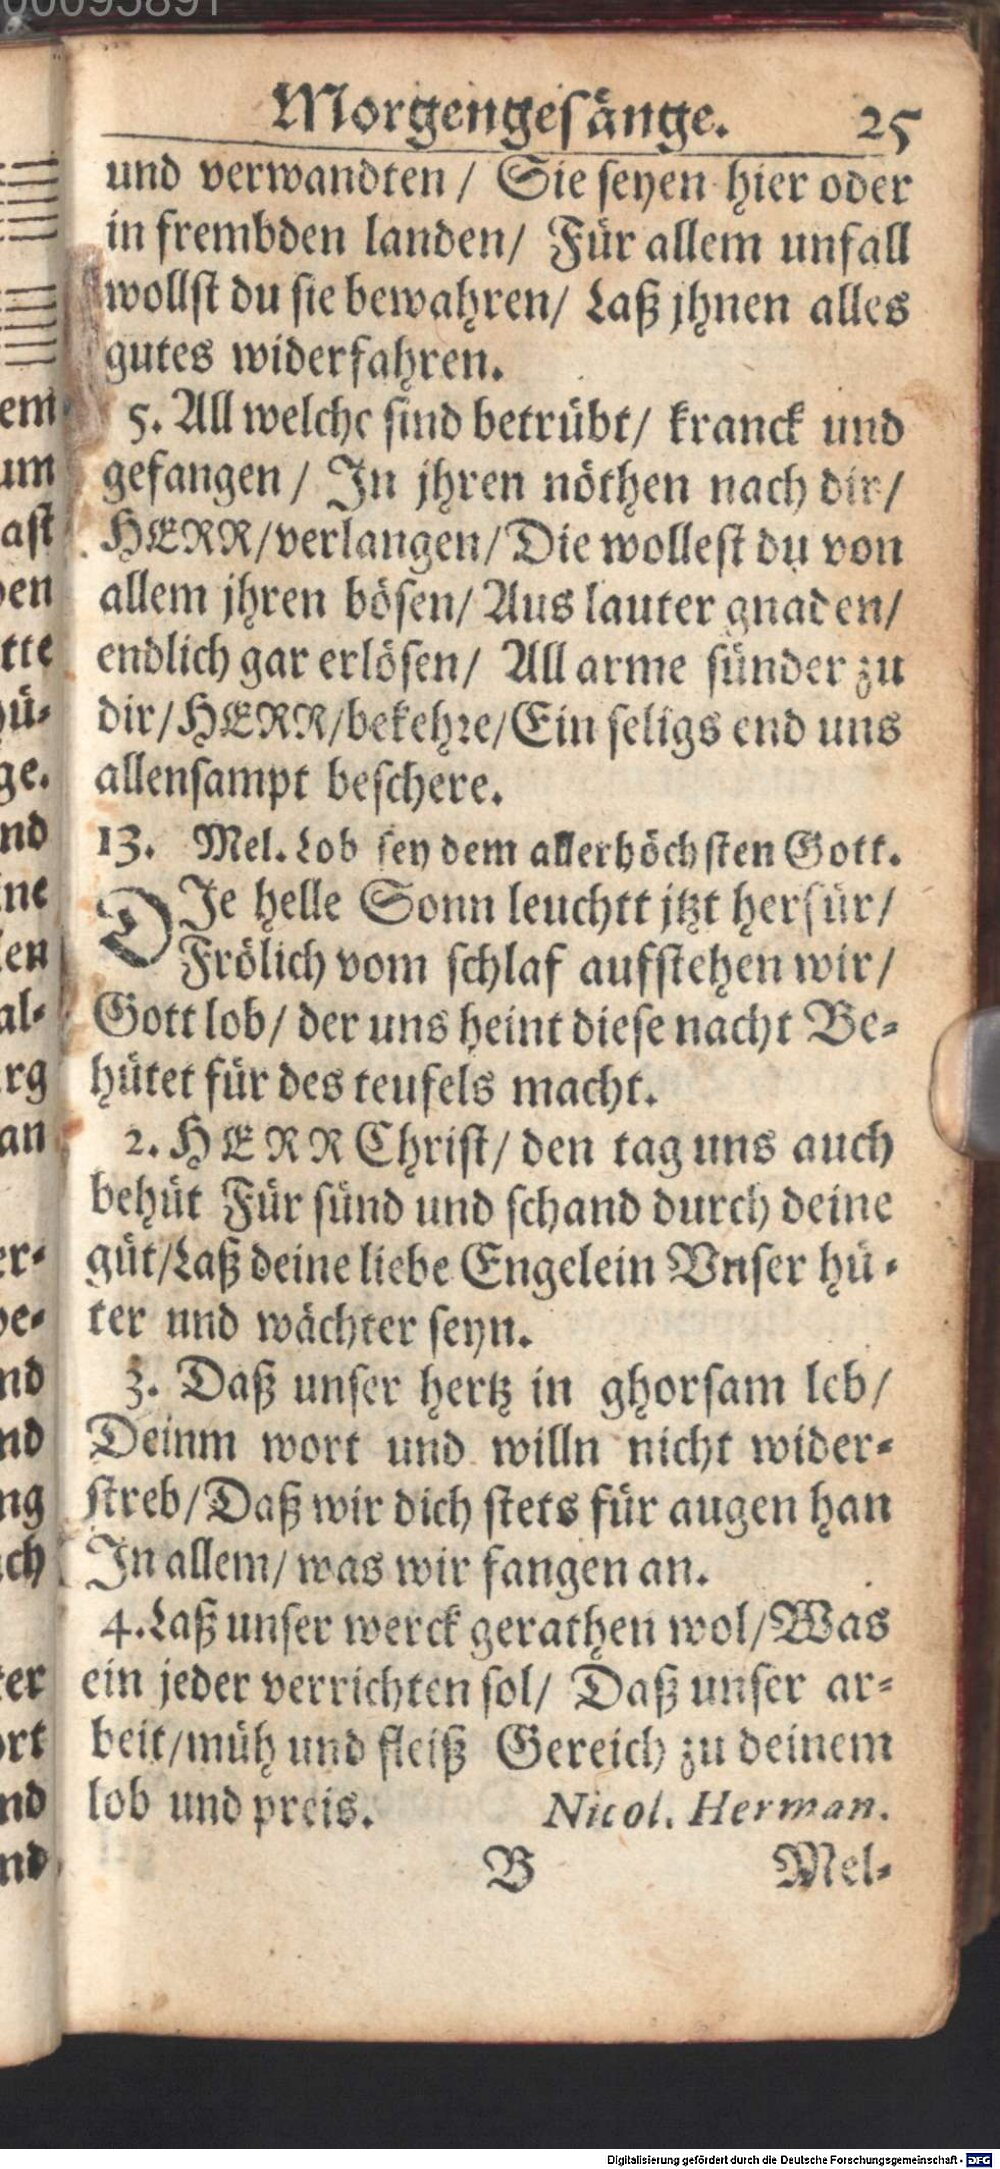 Morgengesänge. 25
und verwandten / Sie seyen hier oder
in frembden landen/ Für allem unfall
wollst du sie bewahren/ Laß jhnen alles
gutes widerfahren.
5. All welche sind betrübt/ kranck und
gefangen / In jhren nöthen nach dir/
HERR/verlangen/Die wollest du von
allem jhren bösen/ Aus lauter gnaden/
endlich gar erlösen/ All arme sünder zu
dir/HERR/bekehre/Ein seligs end uns
allensampt beschere.
13. Mel. Lob sey dem allerhöchsten Gott.
DIe helle Sonn leuchtt jtzt herfür/
Frölich vom schlaf aufstehen wir/
Gott lob/ der uns heint diese nacht Be-
hütet für des teufels macht.
2. HERR Christ/ den tag uns auch
behüt Für sünd und schand durch deine
güt/Laß deine liebe Engelein Vnser hü-
ter und wächter seyn.
3. Daß unser hertz in ghorsam leb/
Deinm wort und willn nicht wider-
streb/Daß wir dich stets für augen han
In allem/ was wir fangen an.
4. Laß unser werck gerathen wol/Was
ein jeder verrichten sol/ Daß unser ar-
beit/müh und fleiß Gereich zu deinem
lob und preis. Nicol. Herman.
B Mel-
Digitalisierung gefördert durch die Deutsche Forschungsgemeinschaft - DFG